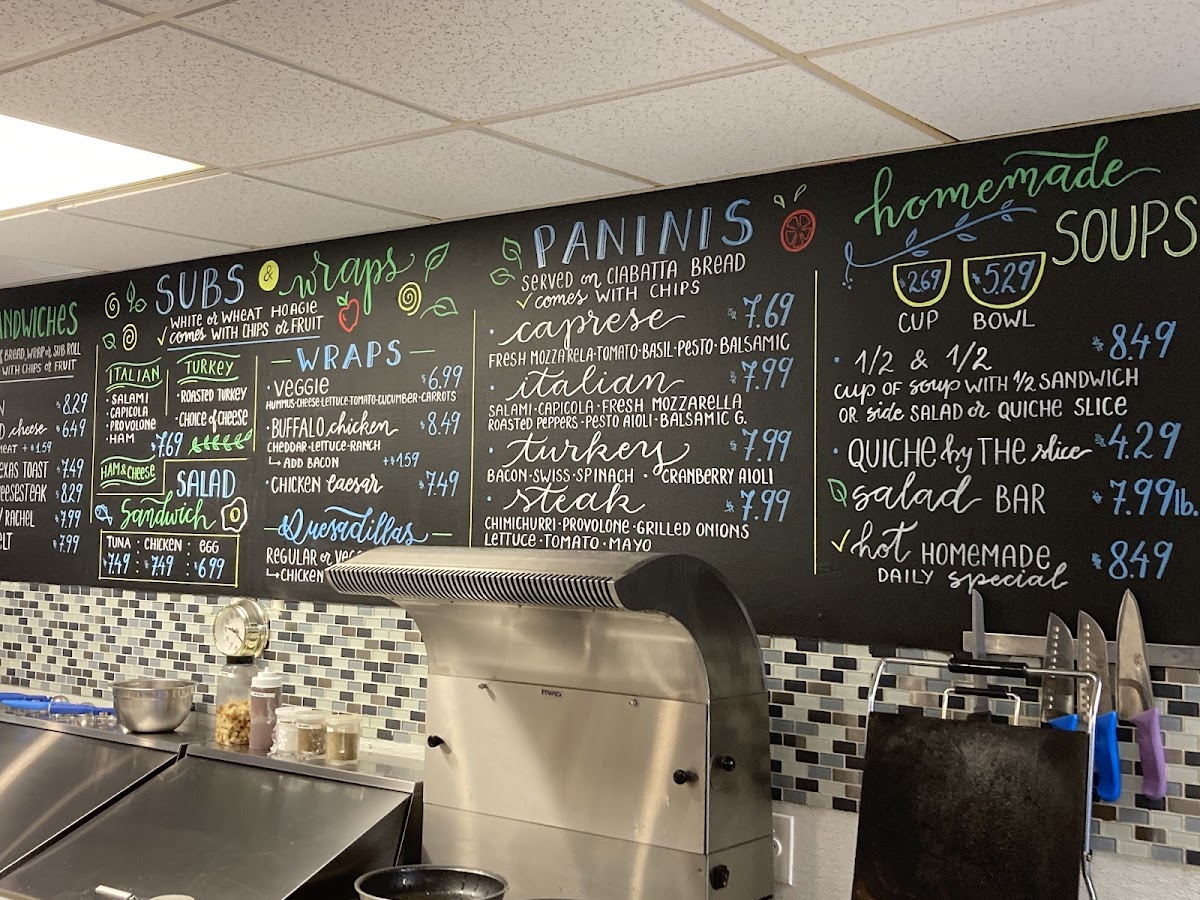 ANDWICHES
BREAD, WRAP or SUB ROLL
WITH CHIPS or FRUIT
$8.29
cheese $6.49
MEAT + $1.59
EXAS TOAST $7.49
EESESTEAK $8.29
/ RACHEL $7.99
ELT $7.99
SUBS & wraps
WHITE or WHEAT HOAGIE
✓ comes WITH CHIPS or FRUIT
ITALIAN
· SALAMI
· CAPICOLA
· PROVOLONE
· HAM
$7.69
HAM & CHEESE
TURKEY
· ROASTED TURKEY
· CHOICE of CHEESE
SALAD
Sandwich
TUNA : CHICKEN : EGG
$7.49 : $7.49 : $6.99
— WRAPS —
· VEGGIE $6.99
HUMMUS·CHEESE·LETTUCE·TOMATO·CUCUMBER·CARROTS
· BUFFALO chicken $8.49
CHEDDAR·LETTUCE·RANCH
↳ ADD BACON +$1.59
· CHICKEN caesar $7.49
— Quesadillas —
REGULAR or VEGG
↳ CHICKEN
PANINIS
SERVED on CIABATTA BREAD
✓ comes WITH CHIPS
· caprese $7.69
FRESH MOZZARELA·TOMATO·BASIL·PESTO·BALSAMIC
· italian $7.99
SALAMI·CAPICOLA·FRESH MOZZARELLA
ROASTED PEPPERS·PESTO AIOLI·BALSAMIC G.
· turkey $7.99
BACON·SWISS·SPINACH · CRANBERRY AIOLI
· steak $7.99
CHIMICHURRI·PROVOLONE·GRILLED ONIONS
LETTUCE·TOMATO·MAYO
homemade
SOUPS
$2.69 $5.29
CUP BOWL
· 1/2 & 1/2 $8.49
cup of soup WITH 1/2 SANDWICH
OR side SALAD or QUICHE SLICE
· QUICHE by THE slice $4.29
salad BAR $7.99 lb.
✓ hot HOMEMADE $8.49
DAILY special